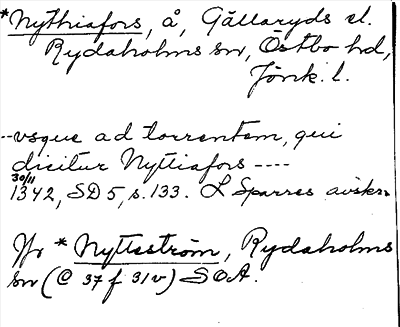 *Nythiafors, å, Gällaryds el.
Rydaholms sn, Östbo hd,
Jönk. l.
--vsque ad torrentem, qui
dicitur Nyttiafors ----
30/11
1342, SD 5, s. 133. L Sparres avskr.
Jfr *Nytteström, Rydaholms
sn (@ 37 f 31v) SOA.